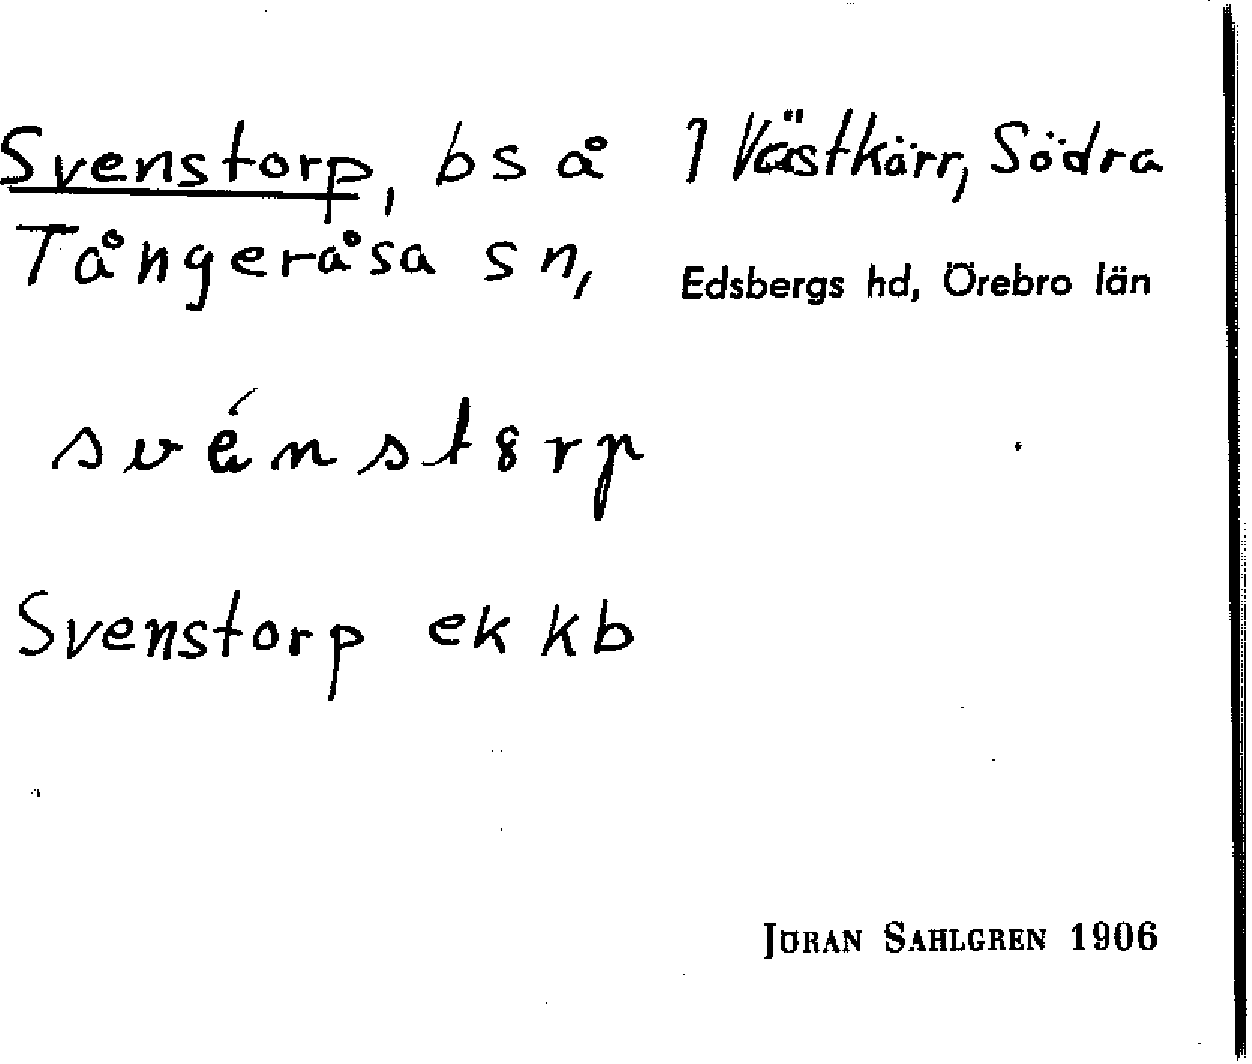 Svenstorp, bs å 1 Västkärr, Södra
Tångeråsa sn, Edsbergs hd, Örebro län
svénstȣrp
Svenstorp ek kb
JÖRAN SAHLGREN 1906